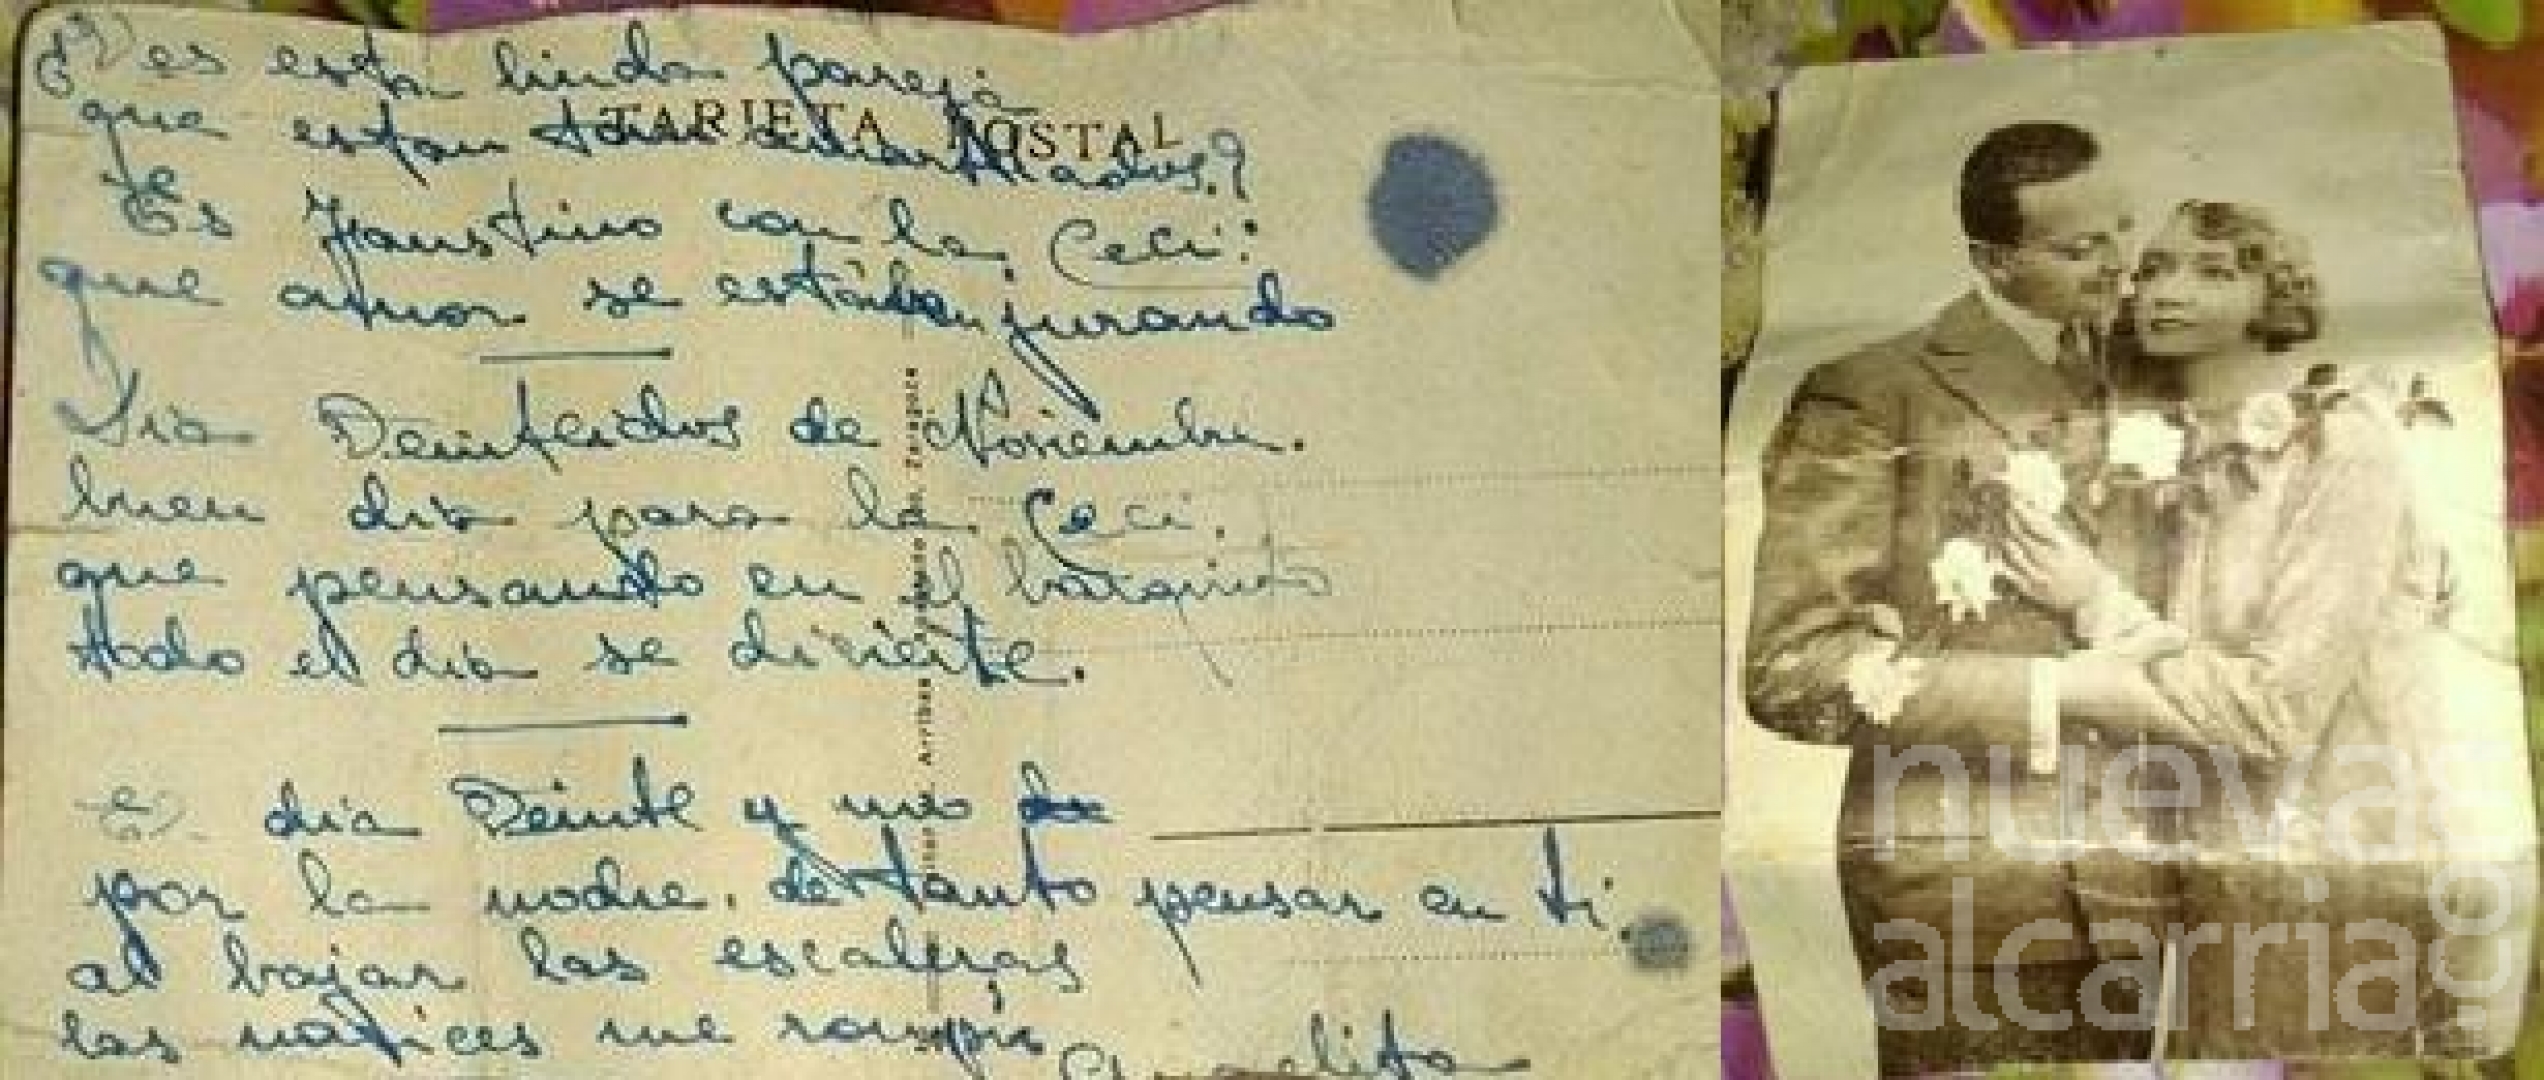 ¿Ves esta linda pareja
TARJETA POSTAL
que estan tan amartelados?
Es Faustino con la Ceci:
que amor se estan jurando
Dia Veintidos de Noviembre.
buen dia para la Ceci.
que pensando en el
todo el dia se divierte.
El dia Veinte y uno de
por la noche. de tanto pensar en ti.
al bajar las escaleras
las narices me rompi
Angelita
Arribas
Zaragoza
nueva
alcarria